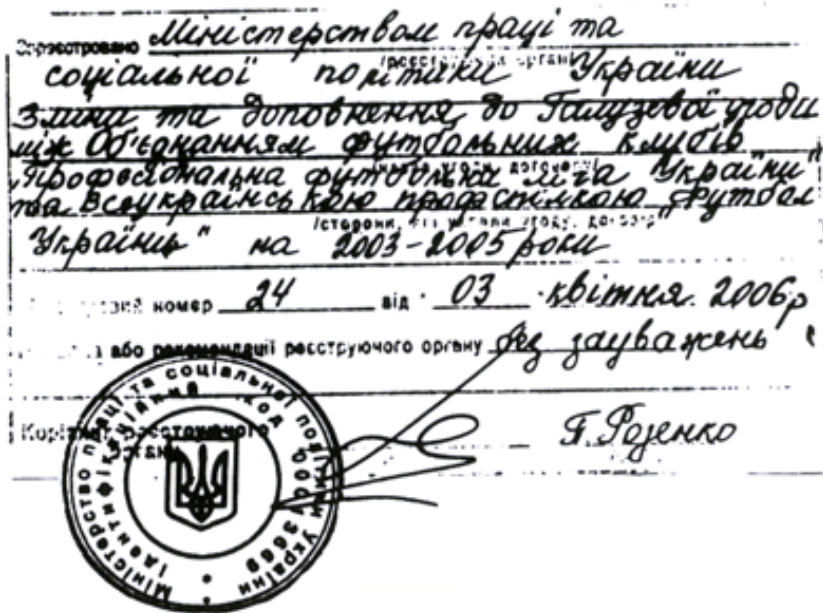 Зареєстровано Міністерством праці та
/реєструючий орган/
соціальної політики України
Зміни та доповнення до Галузевої угоди
між Об'єднанням футбольних клубів
угоди, договору/
„Професіональна футбольна ліга України"
та Всеукраїнською профспілкою „Футбол
/сторони, що уклали угоду, договір/
України" на 2003-2005 роки
номер 24 від " 03 " квітня 2006р
або рекомендації реєструючого органу без зауважень
Керівник реєструючого
органу
П. Розенко
Міністерство праці та соціальної політики України
Ідентифікаційний код 00013669